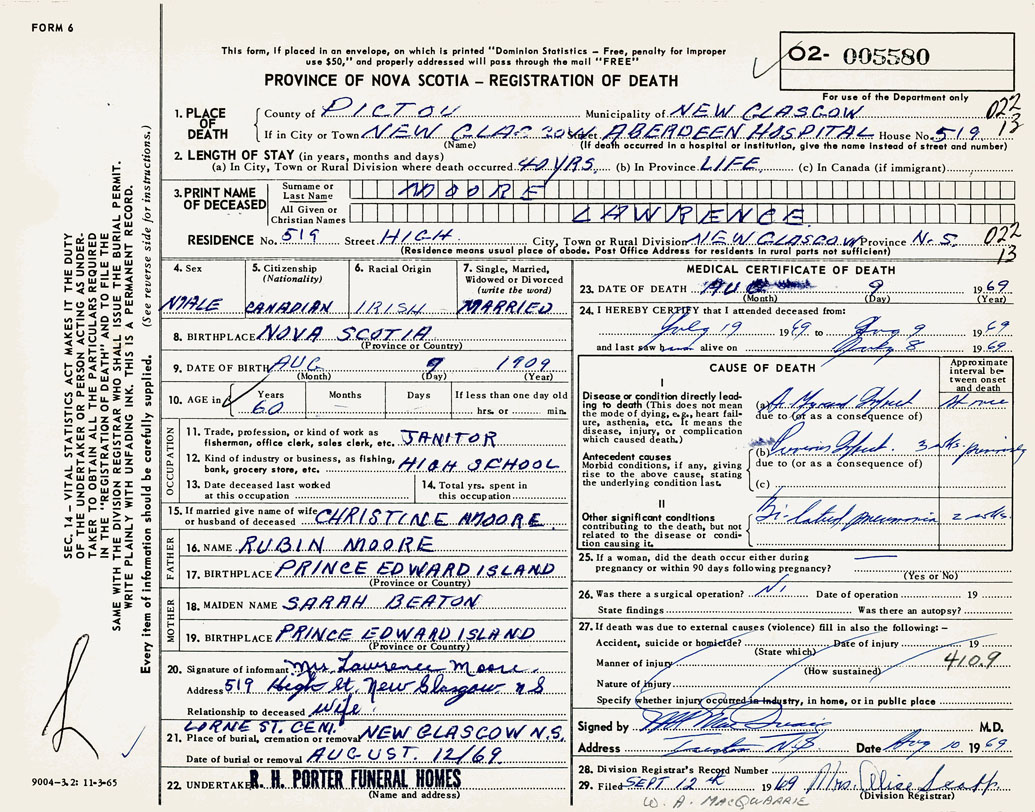 FORM 6
This form, if placed in an envelope, on which is printed "Dominion Statistics – Free, penalty for improper
use $50," and properly addressed will pass through the mail "FREE"
PROVINCE OF NOVA SCOTIA – REGISTRATION OF DEATH
02- 005580
For use of the Department only
1. PLACE OF DEATH
County of PICTOU Municipality of NEW GLASGOW 022
If in City or Town NEW GLASGOW Street ABERDEEN HOSPITAL House No. 519 13
(Name) (If death occurred in a hospital or institution, give the name instead of street and number)
2. LENGTH OF STAY (in years, months and days)
(a) In City, Town or Rural Division where death occurred 40 YRS. (b) In Province LIFE (c) In Canada (if immigrant)
3. PRINT NAME OF DECEASED
Surname or Last Name MOORE
All Given or Christian Names LAWRENCE
RESIDENCE No. 519 Street HIGH City, Town or Rural Division NEW GLASGOW Province N.S. 022
(Residence means usual place of abode. Post Office Address for residents in rural parts not sufficient) 13
4. Sex MALE
5. Citizenship (Nationality) CANADIAN
6. Racial Origin IRISH
7. Single, Married, Widowed or Divorced (write the word) MARRIED
8. BIRTHPLACE NOVA SCOTIA
(Province or Country)
9. DATE OF BIRTH AUG 9 1909
(Month) (Day) (Year)
10. AGE in Years 60 Months Days If less than one day old
hrs. or min.
OCCUPATION
11. Trade, profession, or kind of work as fisherman, office clerk, sales clerk, etc. JANITOR
12. Kind of industry or business, as fishing, bank, grocery store, etc. HIGH SCHOOL
13. Date deceased last worked at this occupation
14. Total yrs. spent in this occupation
15. If married give name of wife or husband of deceased CHRISTINE MOORE
FATHER
16. NAME RUBIN MOORE
17. BIRTHPLACE PRINCE EDWARD ISLAND
(Province or Country)
MOTHER
18. MAIDEN NAME SARAH BEATON
19. BIRTHPLACE PRINCE EDWARD ISLAND
(Province or Country)
20. Signature of informant Mrs Lawrence Moore
Address 519 High St. New Glasgow N S
Relationship to deceased Wife
LORNE ST. CEM.
21. Place of burial, cremation or removal NEW GLASGOW N.S.
Date of burial or removal AUGUST. 12/69
22. UNDERTAKER R. H. PORTER FUNERAL HOMES
(Name and address)
MEDICAL CERTIFICATE OF DEATH
23. DATE OF DEATH AUG 9 1969
(Month) (Day) (Year)
24. I HEREBY CERTIFY that I attended deceased from:
July 19 1969 to Aug 9 1969
and last saw him alive on 8 1969
CAUSE OF DEATH
Approximate interval between onset and death
I
Disease or condition directly leading to death (This does not mean the mode of dying, e.g., heart failure, asthenia, etc. It means the disease, injury, or complication which caused death.)
(a) At once
due to (or as a consequence of)
Antecedent causes
Morbid conditions, if any, giving rise to the above cause, stating the underlying condition last.
(b) Previous 3 wks. previously
due to (or as a consequence of)
(c)
II
Other significant conditions contributing to the death, but not related to the disease or condition causing it.
Bilateral pneumonia 2 wks.
25. If a woman, did the death occur either during
pregnancy or within 90 days following pregnancy? —
(Yes or No)
26. Was there a surgical operation? Date of operation 19
State findings Was there an autopsy?
27. If death was due to external causes (violence) fill in also the following: –
Accident, suicide or homicide? Date of injury 19
(State which)
Manner of injury 410.9
(How sustained)
Nature of injury
Specify whether injury occurred in industry, in home, or in public place
Signed by M.D.
Address N.S Date Aug 10 1969
28. Division Registrar's Record Number
29. Filed SEPT 12 1969 Mrs. Alise
(Division Registrar)
W. A. MACQUARRIE
SEC. 14 – VITAL STATISTICS ACT MAKES IT THE DUTY
OF THE UNDERTAKER OR PERSON ACTING AS UNDER-
TAKER TO OBTAIN ALL THE PARTICULARS REQUIRED
IN THE "REGISTRATION OF DEATH" AND TO FILE THE
SAME WITH THE DIVISION REGISTRAR WHO SHALL ISSUE THE BURIAL PERMIT.
WRITE PLAINLY WITH UNFADING INK. THIS IS A PERMANENT RECORD.
Every item of information should be carefully supplied. (See reverse side for instructions.)
9004–3.2: 11-3-65